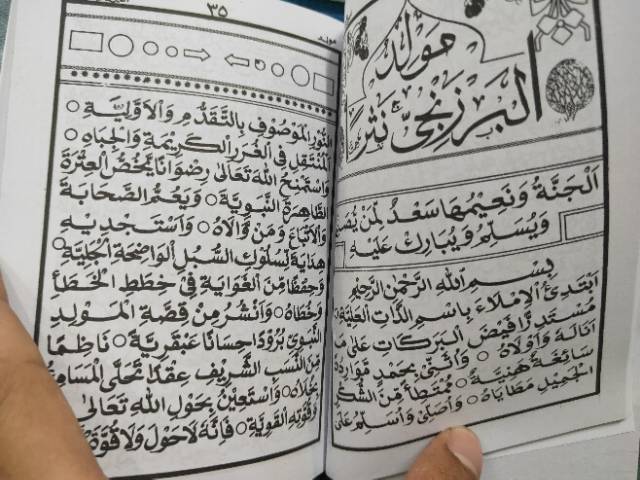 مَوْلِدُ
الْبَرْزَنْجِيّ نَثَرْ
اَلْجَنَّةُ وَنَعِيْمُهَا سَعْدٌ لِمَنْ يُصَلِّيْ
وَيُسَلِّمُ وَيُبَارِكُ عَلَيْهِ
بِسْمِ اللهِ الرَّحْمٰنِ الرَّحِيْمِ
اَبْتَدِئُ الْاِمْلَاءَ بِاسْمِ الذَّاتِ الْعَلِيَّةِ
مُسْتَدِرًّا فَيْضَ الْبَرَكَاتِ عَلٰى مَا
اَنَالَهُ وَاَوْلَاهُ ۞ وَاُثَنِّيْ بِحَمْدٍ مَوَارِدُهُ
سَائِغَةٌ هَنِيَّةٌ ۞ مُمْتَطِأً مِنَ الشُّكْرِ
الْجَمِيْلِ مَطَايَاهُ ۞ وَاُصَلِّيْ وَاُسَلِّمُ عَلَى
مولد
٣٥
النُّوْرِ الْمَوْصُوْفِ بِالتَّقَدُّمِ وَالْاَوَّلِيَّةِ ۞
الْمُنْتَقِلِ فِى الْغُرَرِ الْكَرِيْمَةِ وَالْجِبَاهِ ۞
وَاسْتَمْنِحُ اللهَ تَعَالٰى رِضْوَانًا يَخُصُّ الْعِتْرَةَ
الطَّاهِرَةَ النَّبَوِيَّةَ ۞ وَيَعُمُّ الصَّحَابَةَ
وَالْاَتْبَاعَ وَمَنْ وَالَاهُ ۞ وَاَسْتَجْدِيْهِ
هِدَايَةً لِسُلُوْكِ السُّبُلِ الْوَاضِحَةِ الْجَلِيَّةِ ۞
وَحِفْظًا مِنَ الْغَوَايَةِ فِيْ خِطَطِ الْخَطَأِ
وَخُطَاهُ ۞ وَاَنْشُرُ مِنْ قِصَّةِ الْمَوْلِدِ
النَّبَوِيِّ بُرُوْدًا حِسَانًا عَبْقَرِيَّةً ۞ نَاظِمًا
مِنَ النَّسَبِ الشَّرِيْفِ عِقْدًا تُحَلَّى الْمَسَامِعُ
بِحُلَاهُ ۞ وَاَسْتَعِيْنُ بِحَوْلِ اللهِ تَعَالٰى
وَقُوَّتِهِ الْقَوِيَّةِ ۞ فَاِنَّهُ لَا حَوْلَ وَلَا قُوَّةَ